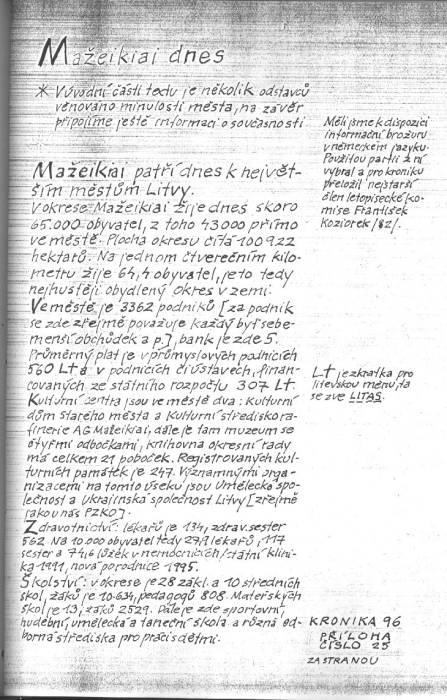 Mažeikiai dnes
* V úvodní části textu je několik odstavců
věnováno minulosti města, na závěr
připojíme ještě informaci o současnosti
Mažeikiai patří dnes k největ-
ším městům Litvy.
V okrese Mažeikiai žije dnes skoro
65.000 obyvatel, z toho 43000 přímo
ve městě. Plocha okresu čítá 100922
hektarů. Na jednom čtverečním kilo-
metru žije 64,4 obyvatel, je to tedy
nejhustěji obydlený okres v zemi.
Ve městě je 3362 podniků [za podnik
se zde zřejmě považuje každý byť sebe-
menší obchůdek a p.], bank je zde 5.
Průměrný plat je v průmyslových podnicích
560 Lt a v podnicích či ústavech, finan-
covaných ze státního rozpočtu 307 Lt.
Kulturní centra jsou ve městě dva: Kulturní
dům starého města a Kulturní středisko ra-
finerie AG Mažeikiai, dále je tam muzeum se
čtyřmi odbočkami, knihovna okresní rady
má celkem 21 poboček. Registrovaných kul-
turních památek je 247. Významnými orga-
nizacemi na tomto úseku jsou Umělecká spo-
lečnost a Ukrajinská společnost Litvy [zřejmě
jako u nás PZKO].
Zdravotnictví: lékařů je 134, zdrav. sester
562. Na 10.000 obyvatel tedy 27,9 lékařů, 117
sester a 74,6 lůžek v nemocnicích/státní klini-
ka 1991, nová porodnice 1995.
Školství: v okrese je 28 zákl. a 10 středních
škol, žáků je 10.634, pedagogů 808. Mateřských
škol je 13, žáků 2529. Dále je zde sportovní,
hudební, umělecká a taneční škola a různá od-
borná střediska pro práci s dětmi.
Měli jsme k dispozici
informační brožuru
v německém jazyku.
Použitou partii z ní
vybral a pro kroniku
přeložil nejstarší
člen letopisecké ko-
mise František
Koziorek /82/.
Lt je zkratka pro
litevskou měnu, ta
se zve LITAS.
KRONIKA 96
PŘÍLOHA
ČÍSLO 25
ZA STRANOU